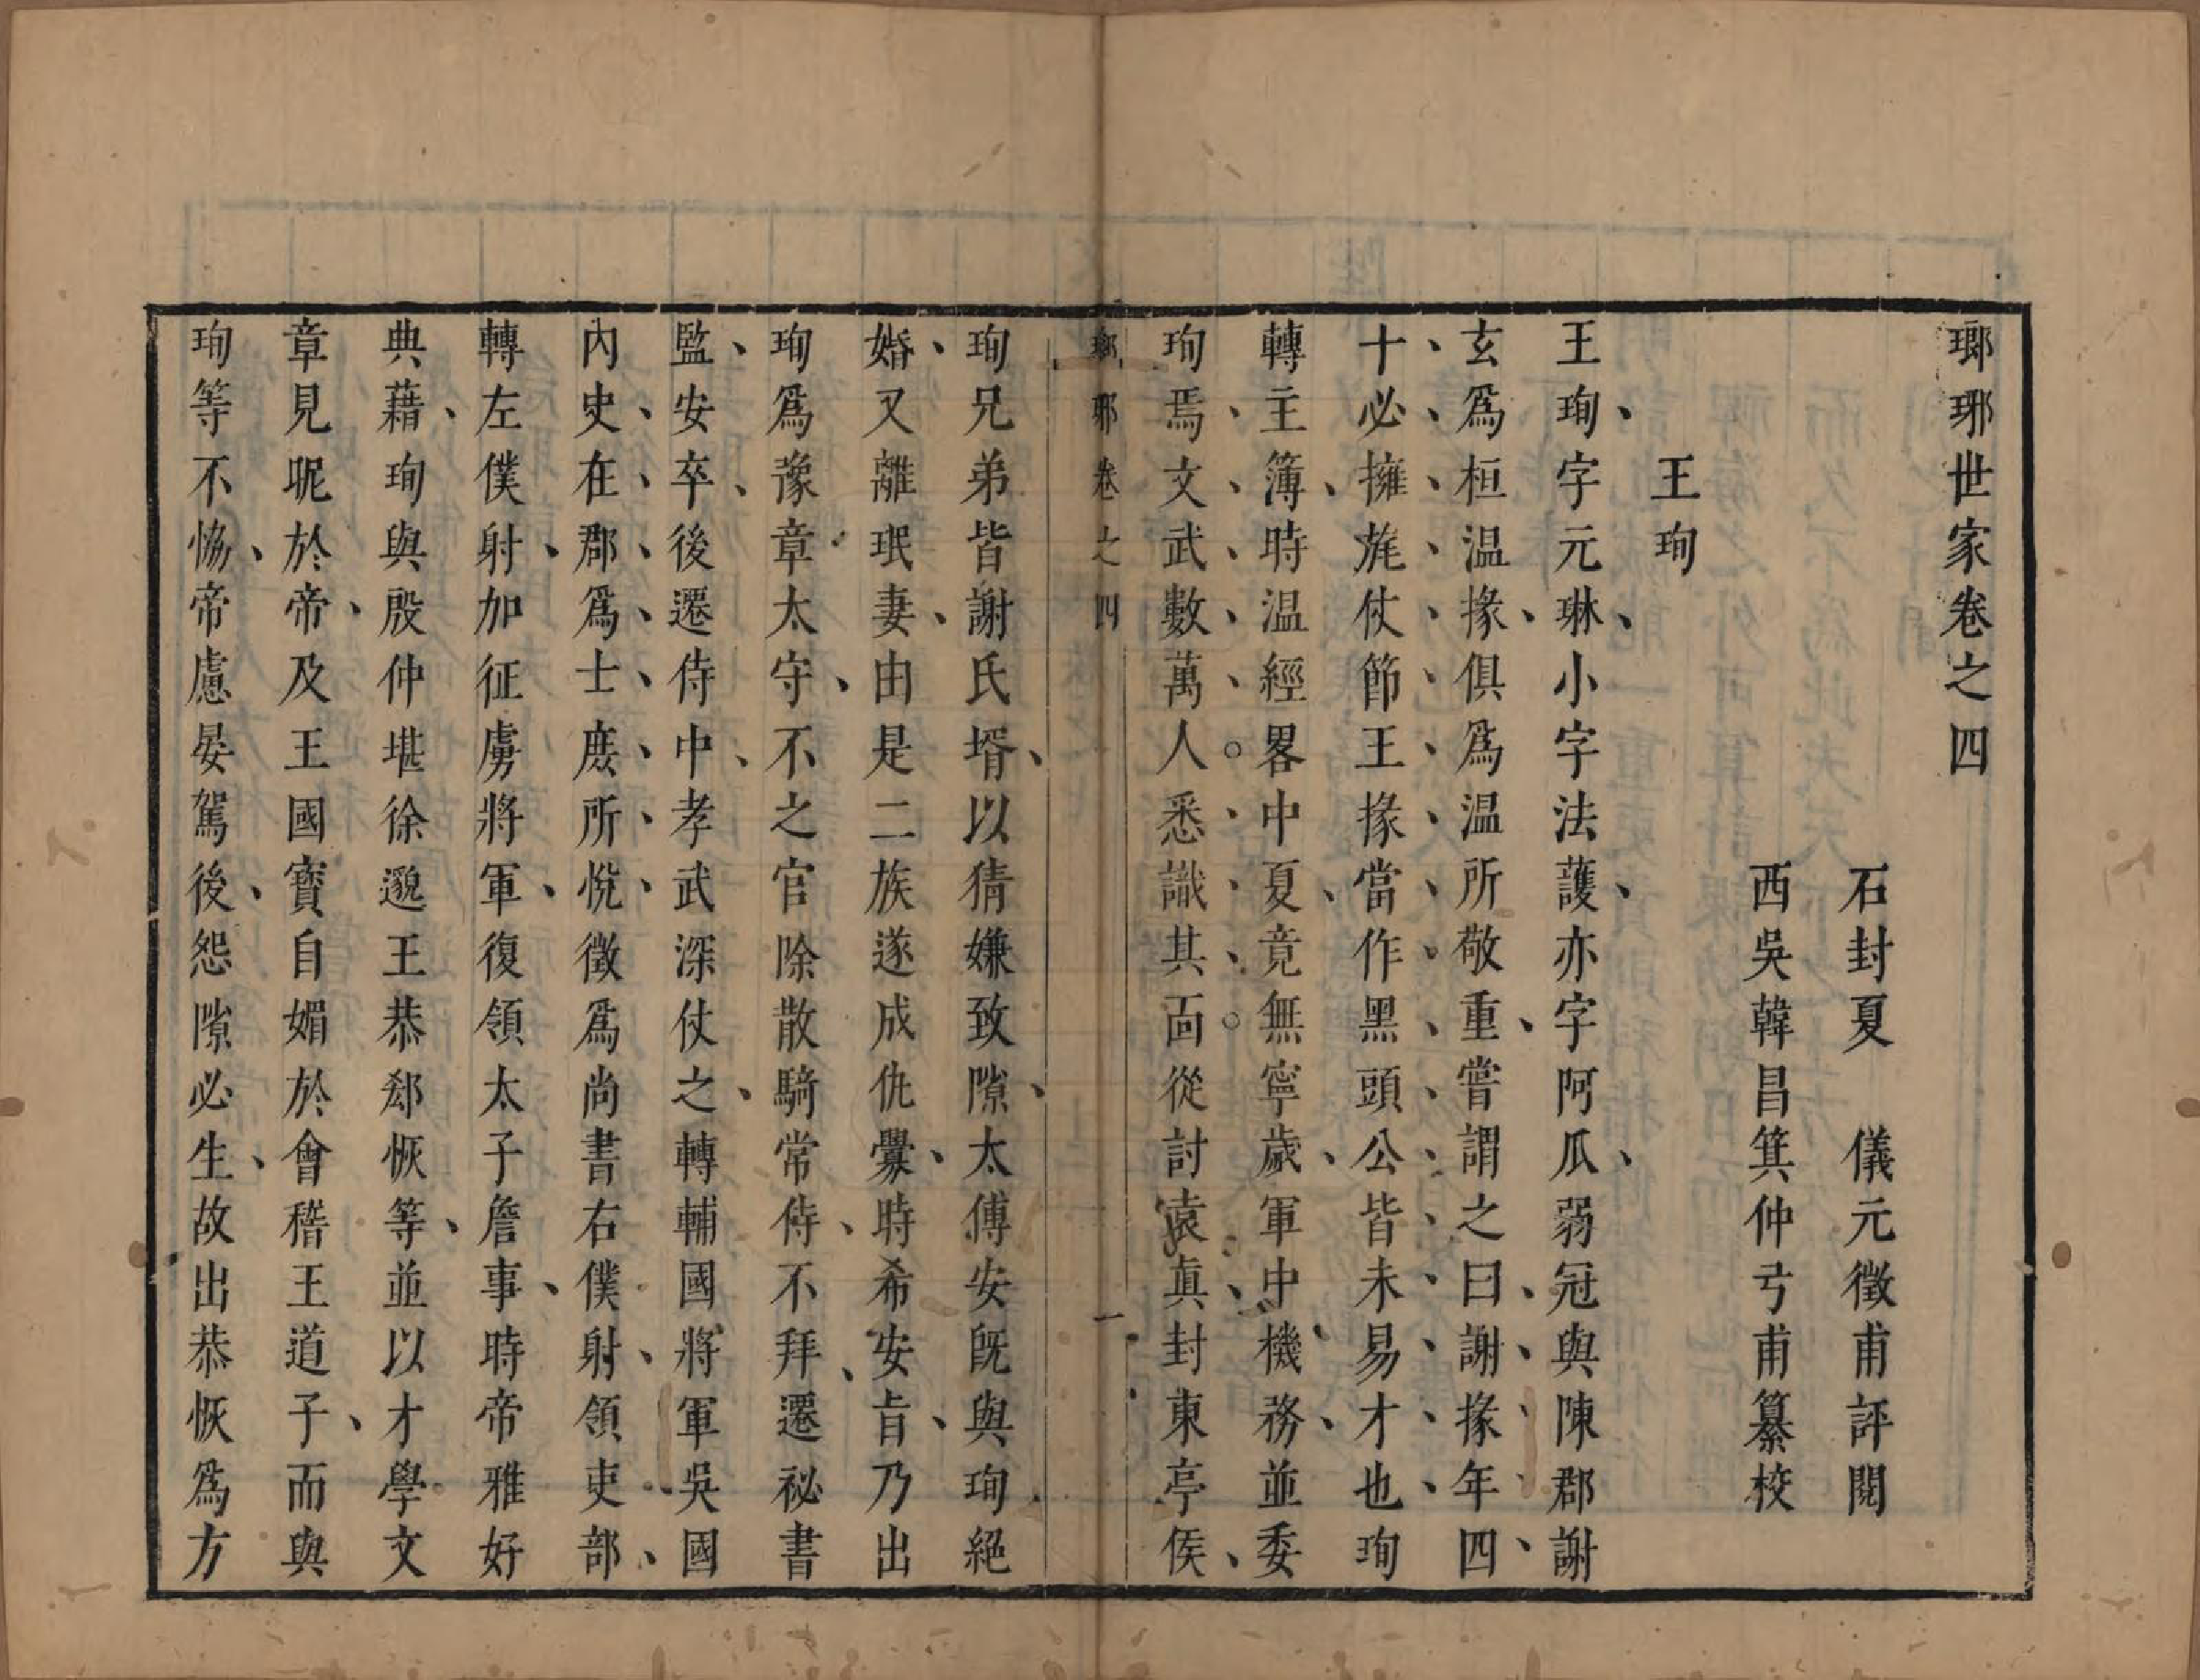 瑯琊世家卷之四
石封夏　儀元徵甫評閱
西吳韓昌箕仲弓甫纂校
王珣
王珣、字元琳、小字法護、亦字阿瓜、弱冠與陳郡謝
玄爲桓温掾、俱爲温所敬重、嘗謂之曰、謝、掾、年、四、
十、必、擁、旄、仗、節、王、掾、當、作、黑、頭、公、皆、未、易、才、也、珣
轉主簿、時温經畧中夏、竟無寧歲、軍中機、務、並委
珣焉、文、武、數、萬、人。悉、識、其、面。從討袁眞、封東亭侯、
瑯琊卷之四　一
珣兄弟皆謝氏壻、以猜嫌致隙、太傅安旣與珣絕
婚、又離珉妻、由是二族遂成仇釁、時希安旨、乃出
珣爲豫章太守、不之官除散騎常侍、不拜、遷祕書
監、安卒、後遷侍中、孝武深仗之、轉輔國將軍吳國
內史、在、郡、爲、士、庶、所、悅、徵爲尚書右僕射、領吏部、
轉左僕射、加征虜將軍、復領太子詹事、時帝雅好
典藉、珣與殷仲堪徐邈王恭郄恢等、並以才學文
章見昵於帝、及王國寳自媚於會稽王道子、而與
珣等不恊、帝慮晏駕後、怨隙必生、故出恭恢爲方